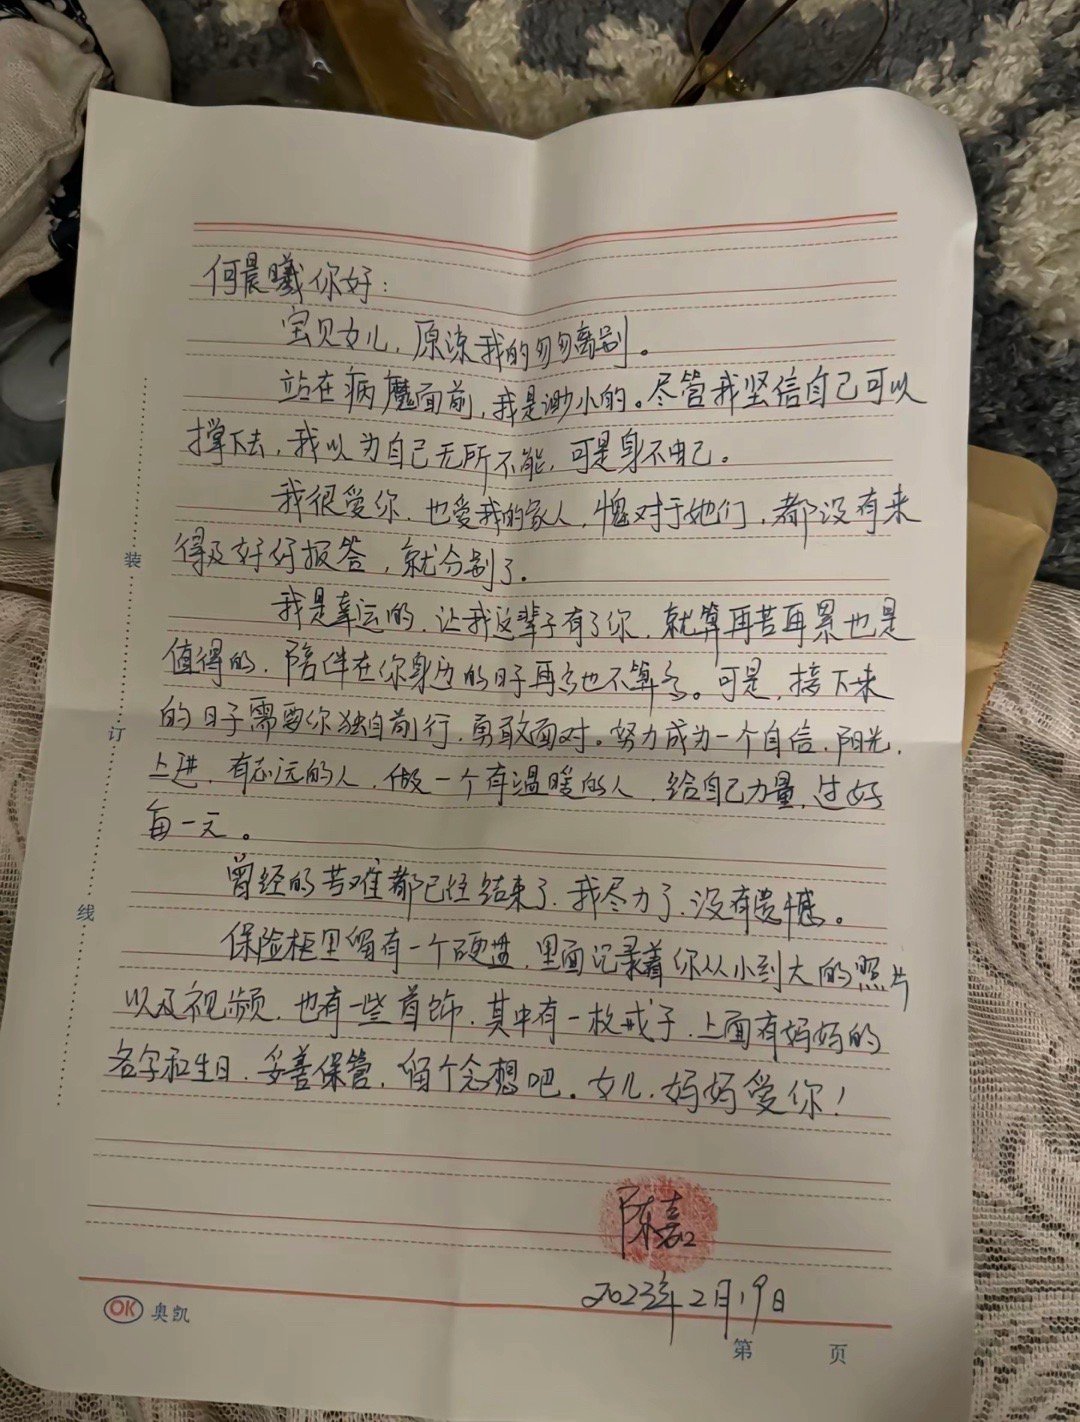 何晨曦你好：
宝贝女儿，原谅我的匆匆离别。
站在病魔面前，我是渺小的。尽管我坚信自己可以
撑下去，我以为自己无所不能，可是身不由己。
我很爱你，也爱我的家人，愧对于她们，都没有来
得及好好报答，就分别了。
我是幸运的，让我这辈子有了你，就算再苦再累也是
值得的，陪伴在你身边的日子再多也不算多。可是，接下来
的日子需要你独自前行，勇敢面对。努力成为一个自信，阳光，
上进，有志远的人，做一个有温暖的人，给自己力量，过好
每一天。
曾经的苦难都已经结束了，我尽力了，没有遗憾。
保险柜里留有一个硬盘，里面记录着你从小到大的照片
以及视频，也有一些首饰，其中有一枚戒子，上面有妈妈的
名字和生日，妥善保管，留个念想吧。女儿，妈妈爱你！
陈嘉
2023年2月19日
装
订
线
OK 奥凯
第 页